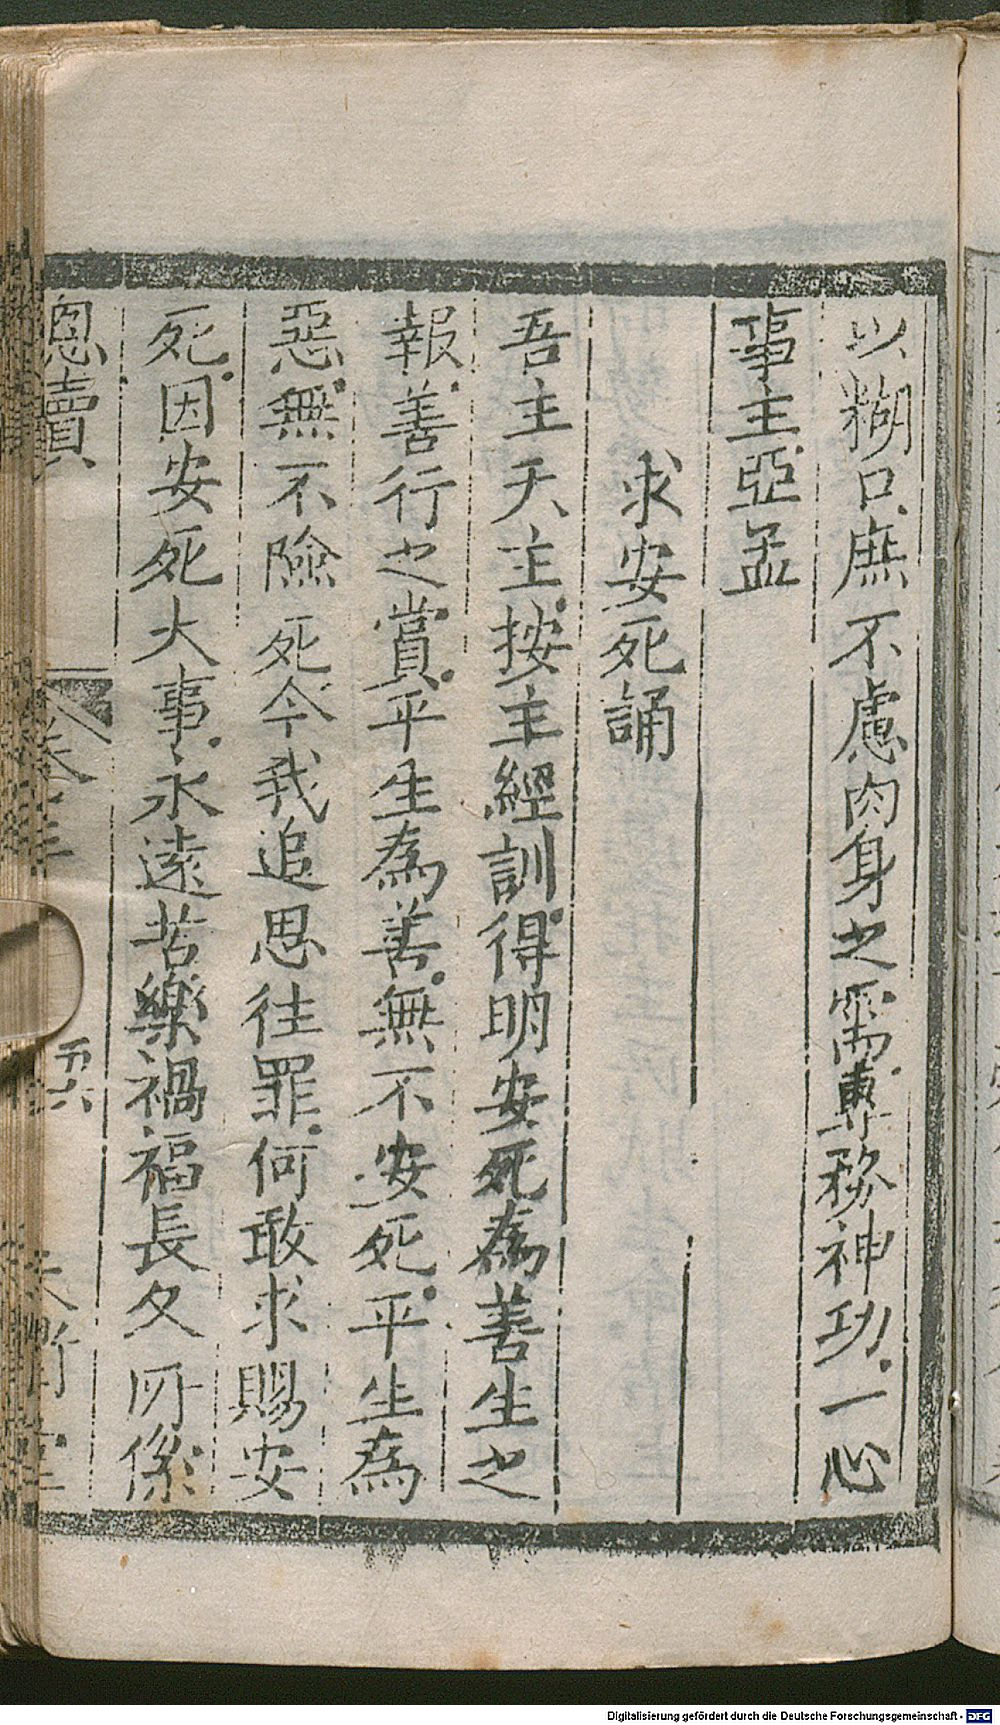 以糊口庶不慮肉身之需專務神功一心
事主亞孟
求安死誦
吾主天主按主經訓得明安死為善生之
報善行之賞平生為善無不安死平生為
惡無不險死今我追思往罪何敢求賜安
死因安死大事永遠苦樂禍福長久所係
恩讀
卷三
Digitalisierung gefördert durch die Deutsche Forschungsgemeinschaft - DFG